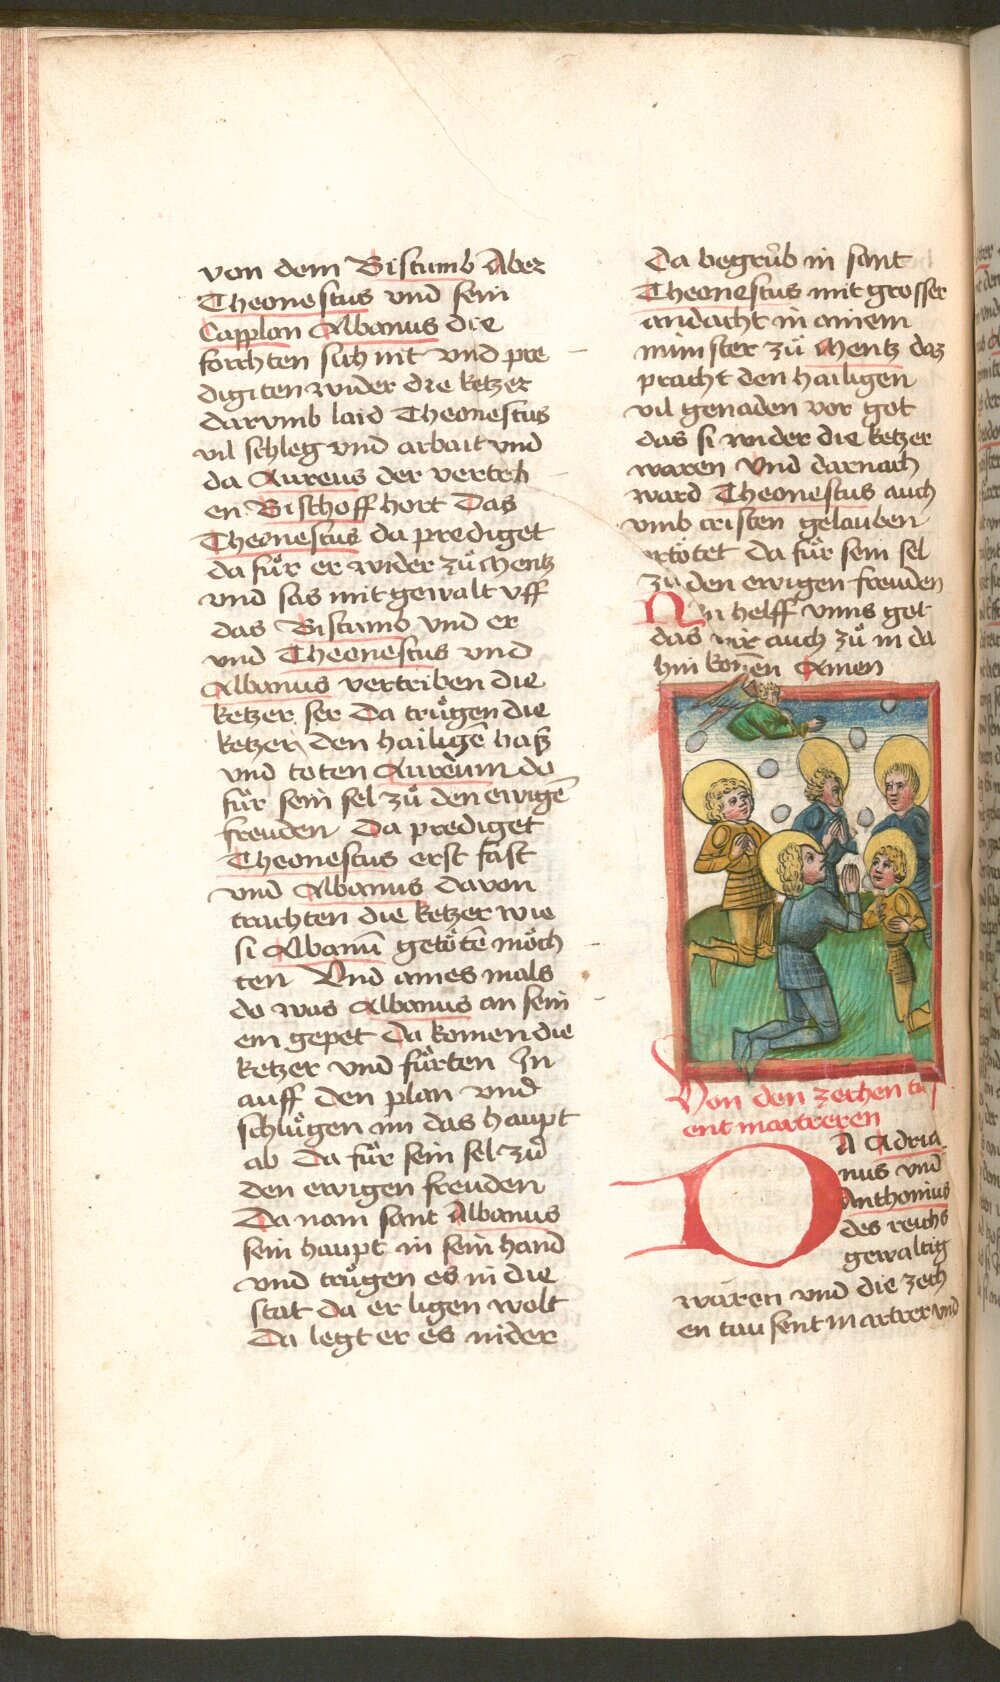 von dem Bistumb Aber
Theonestus vnd sein
Capplan Albanus die
forchten sich nit vnd pre
digiten wider die ketzer
darvmb laid Theonestus
vil schleg vnd arbait vnd
da Aureus der vertrib
en Bischoff hort Das
Theonestus da prediget
da fuͦr er wider zuͦ Mentz
vnd sas mit gewalt vff
das Bistumb vnd er
vnd Theonestus vnd
Albanus vertriben die
ketzer ser Da truͦgen die
ketzer den hailigē haß
vnd toten Aureum do
fuͦr sein sel zuͦ den ewigē
freuden Da prediget
Theonestus erst fast
vnd Albanus davon
trachten die ketzer wie
si Albanū getoͤtē moͤch
ten Vnd aines mals
do was Albanus an sein
em gepet Da komen die
ketzer vnd fuͤrten In
auff den plan vnd
schluͦgen im das haupt
ab Da fuͦr sein sel zuͦ
den ewigen freuden
Da nam sant Albanus
sein haupt in sein hand
vnd truͦgen es in die
stat da er ligen wolt
Da legt er es nider
Da begruͦb in sant
Theonestus mit grosser
andacht in ainem
minster zuͦ Mentz daz
pracht den hailigen
vil genaden vor got
das si wider die ketzer
waren Vnd darnach
ward Theonestus auch
vmb cristen gelauben
ertoͤtet da fuͦr sein sel
zu den ewigen freuden
Nun helff vnns got
das wir auch zuͦ in da
hin komen Amen
Von den zechen tus
ent martreren
DA Adria
nus vnd
Anthonius
des reichs
gewaltig
waren vnd die zech
en tausent martrer vnd